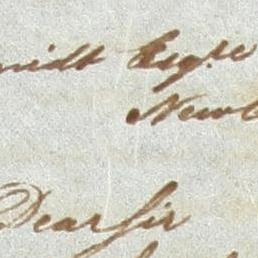 midt Esqre
Newb
Dear Sir